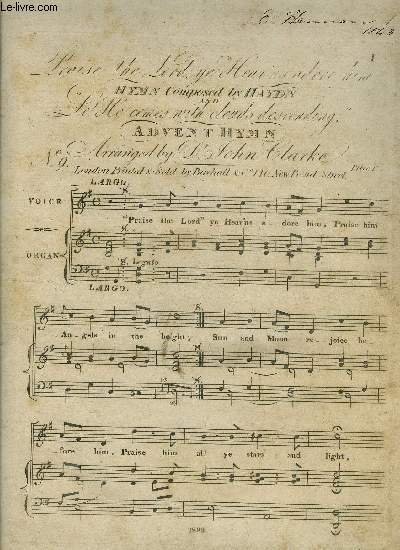 www.le-livre.com
1843
1
Praise the Lord ye Heav'ns adore him
HYMN Composed by HAYDN
AND
Lo! He comes with clouds descending,
ADVENT HYMN
Arranged by Dr. John Clarke
No. 9.
London Printed & Sold by Birchall & Co. 140, New Bond Street. Price
LARGO.
VOICE
"Praise the Lord" ye Heav'ns a - dore him, Praise him
ORGAN
S. Legato.
LARGO.
An - gels in the height, Sun and Moon re - joice be -
- fore him, Praise him all ye stars and light,